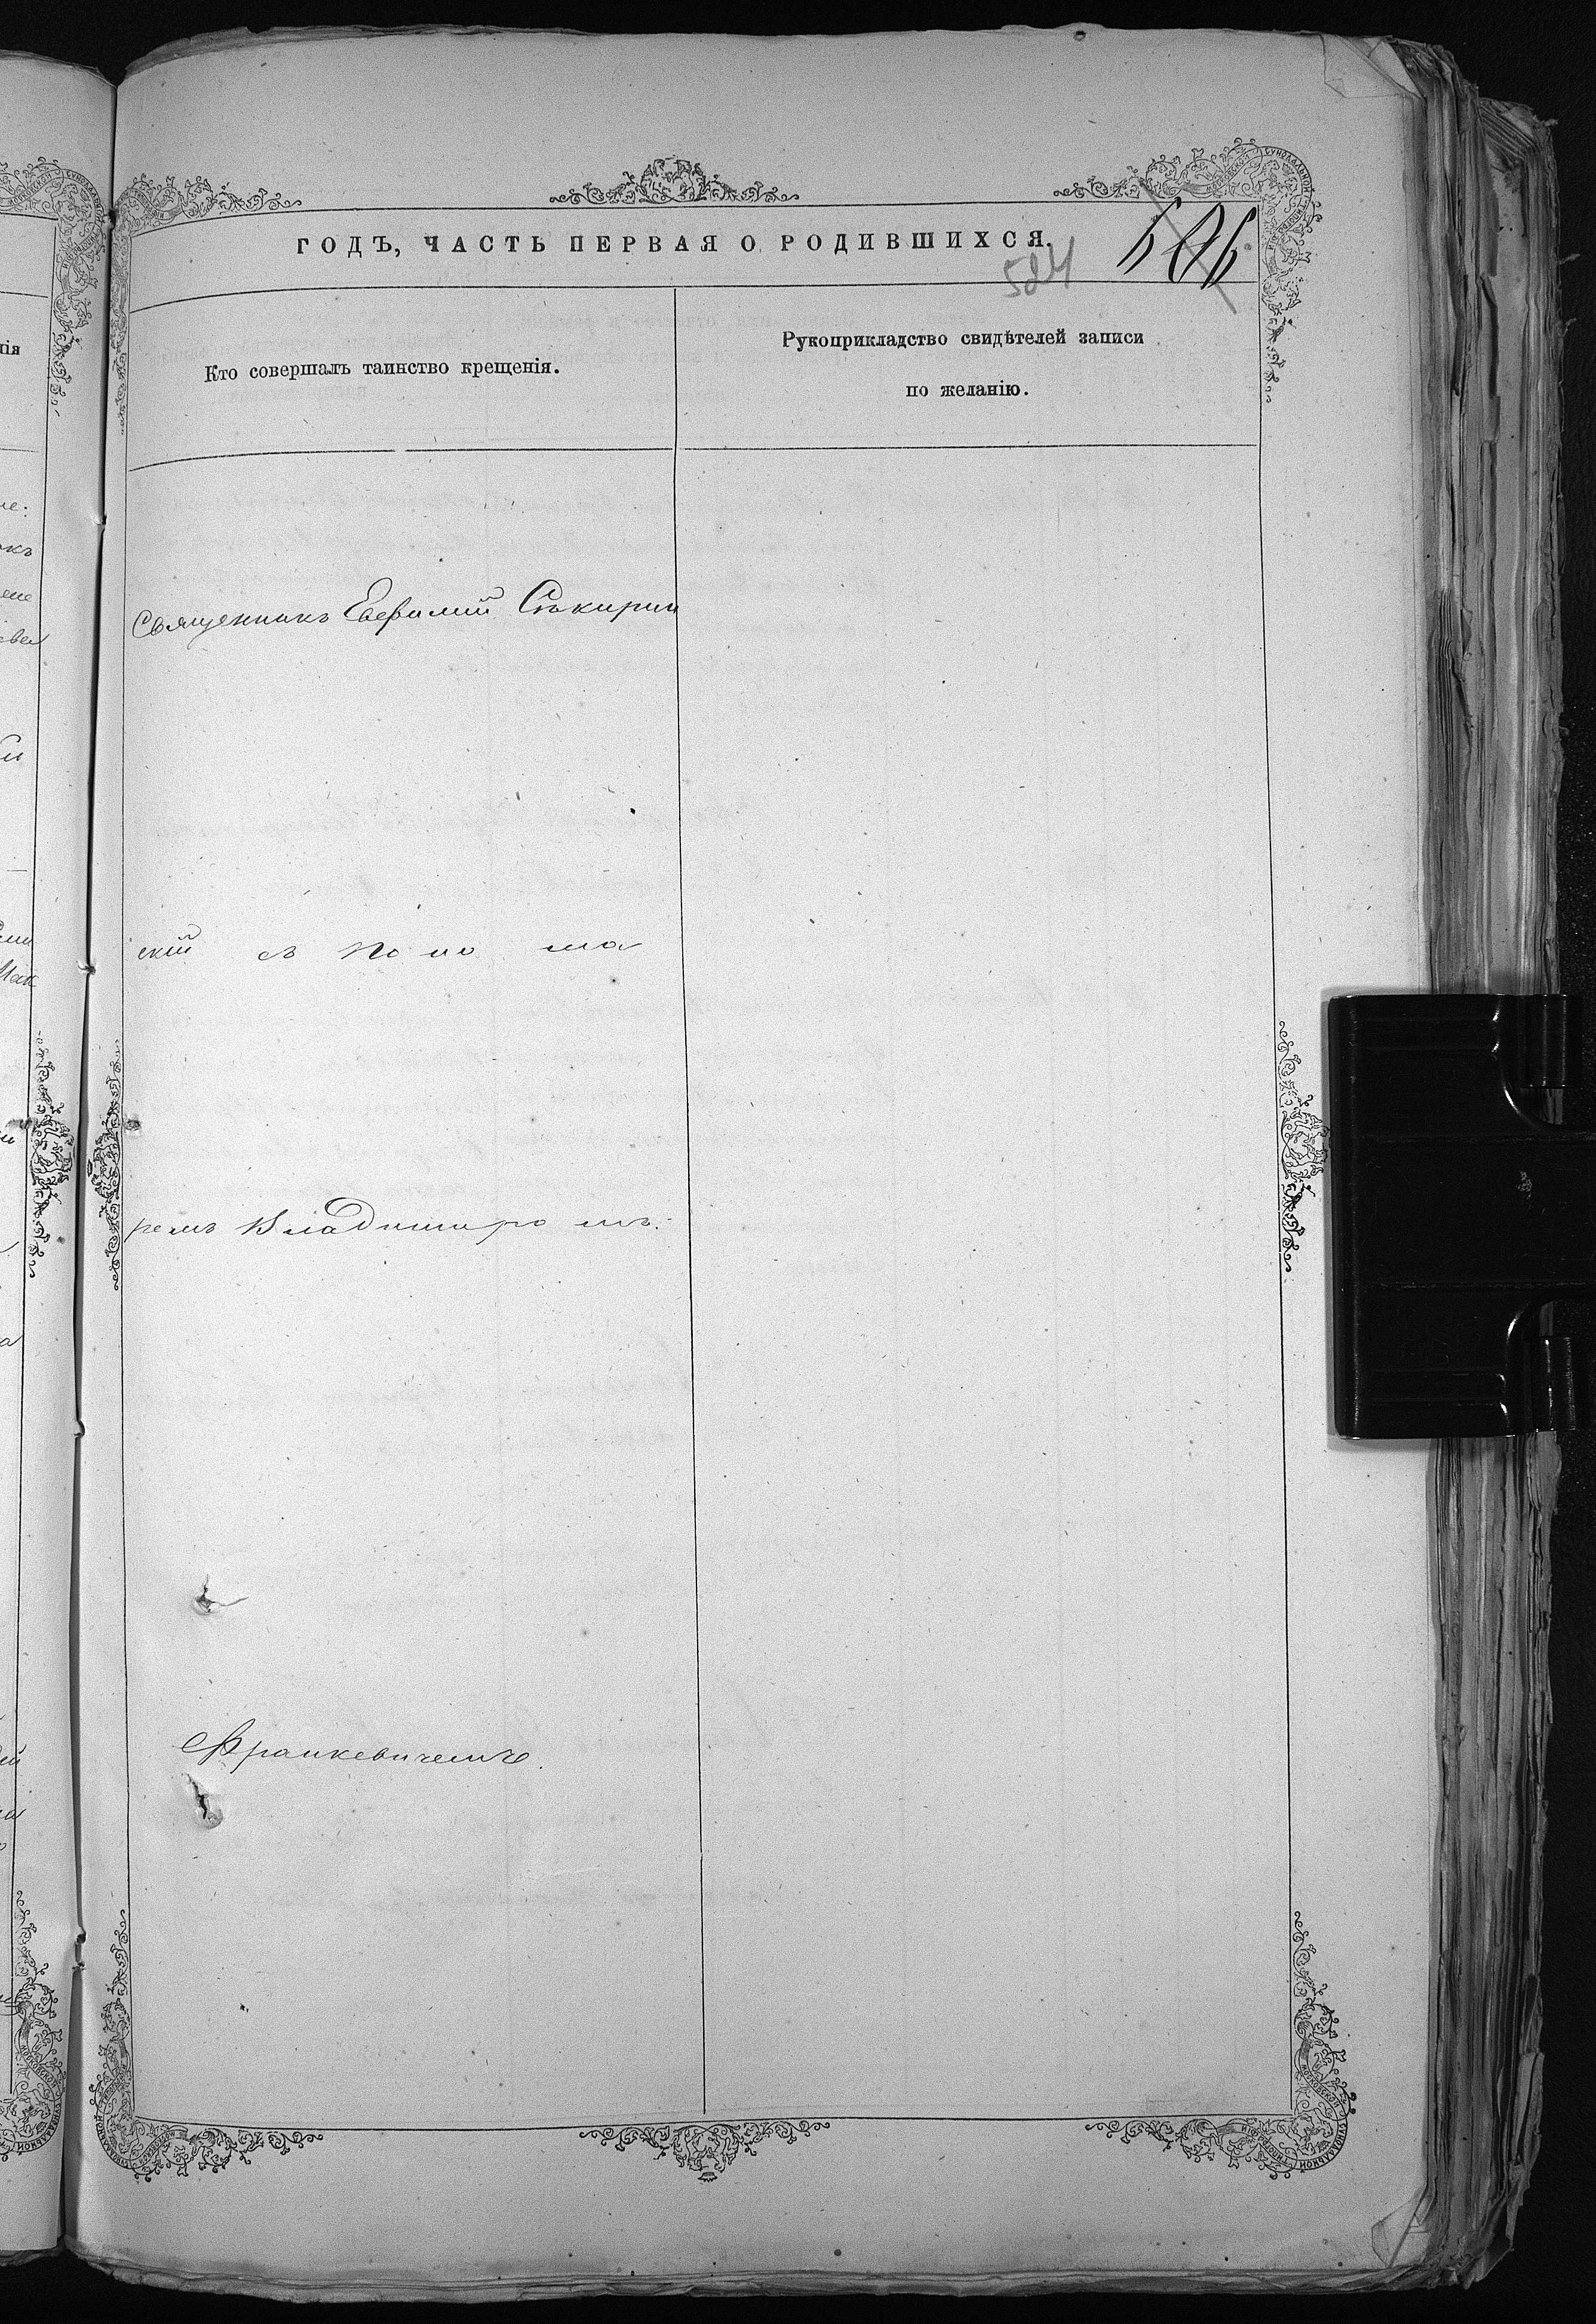 ГОДЪ, ЧАСТЬ ПЕРВАЯ О РОДИВШИХСЯ.
584
Кто совершалъ таинство крещенія.
Рукоприкладство свидѣтелей записи
по желанію.
Священникъ Евфимий Сѣкирин
скій съ поно ма
ремъ Владимиро мъ.
Франкевичемъ.